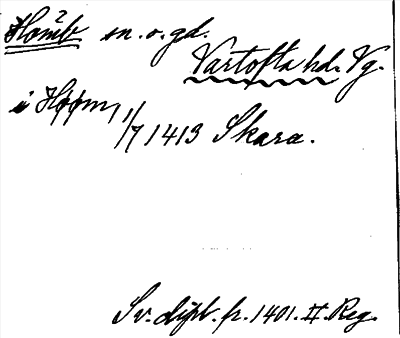 Homb sn. o. gd.
Vartofta hd. Vg.
i Hǿǿm, 1/7 1413 Skara.
Sv. dipl. fr. 1401. II. Reg.